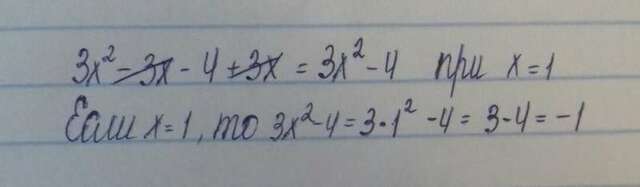 3x² - 3x - 4 + 3x = 3x² - 4 при x = 1
Если x = 1, то 3x² - 4 = 3 · 1² - 4 = 3 - 4 = -1